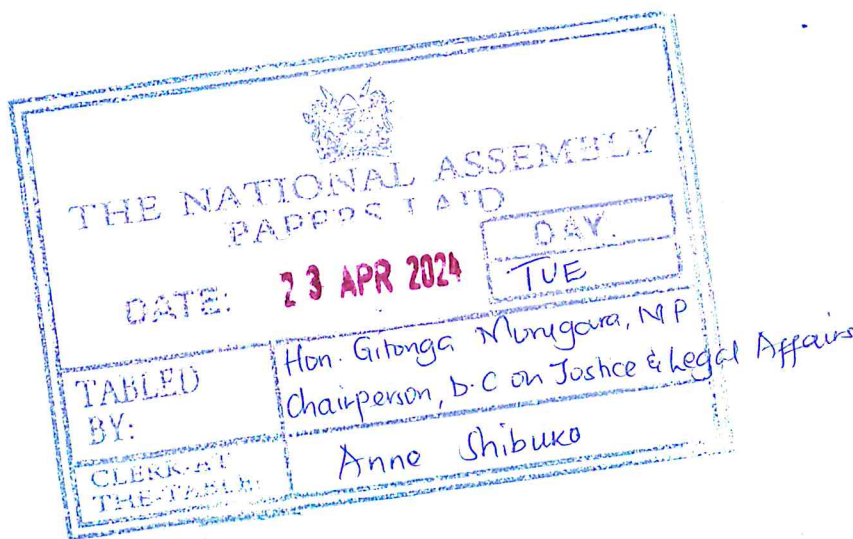 THE NATIONAL ASSEMBLY
PAPERS LAID
DATE: 23 APR 2024
DAY.
TUE
TABLED BY:
Hon. Gitonga Murugara, MP
Chairperson, D.C on Justice & Legal Affairs
CLERK-AT THE-TABLE:
Anne Shibuko